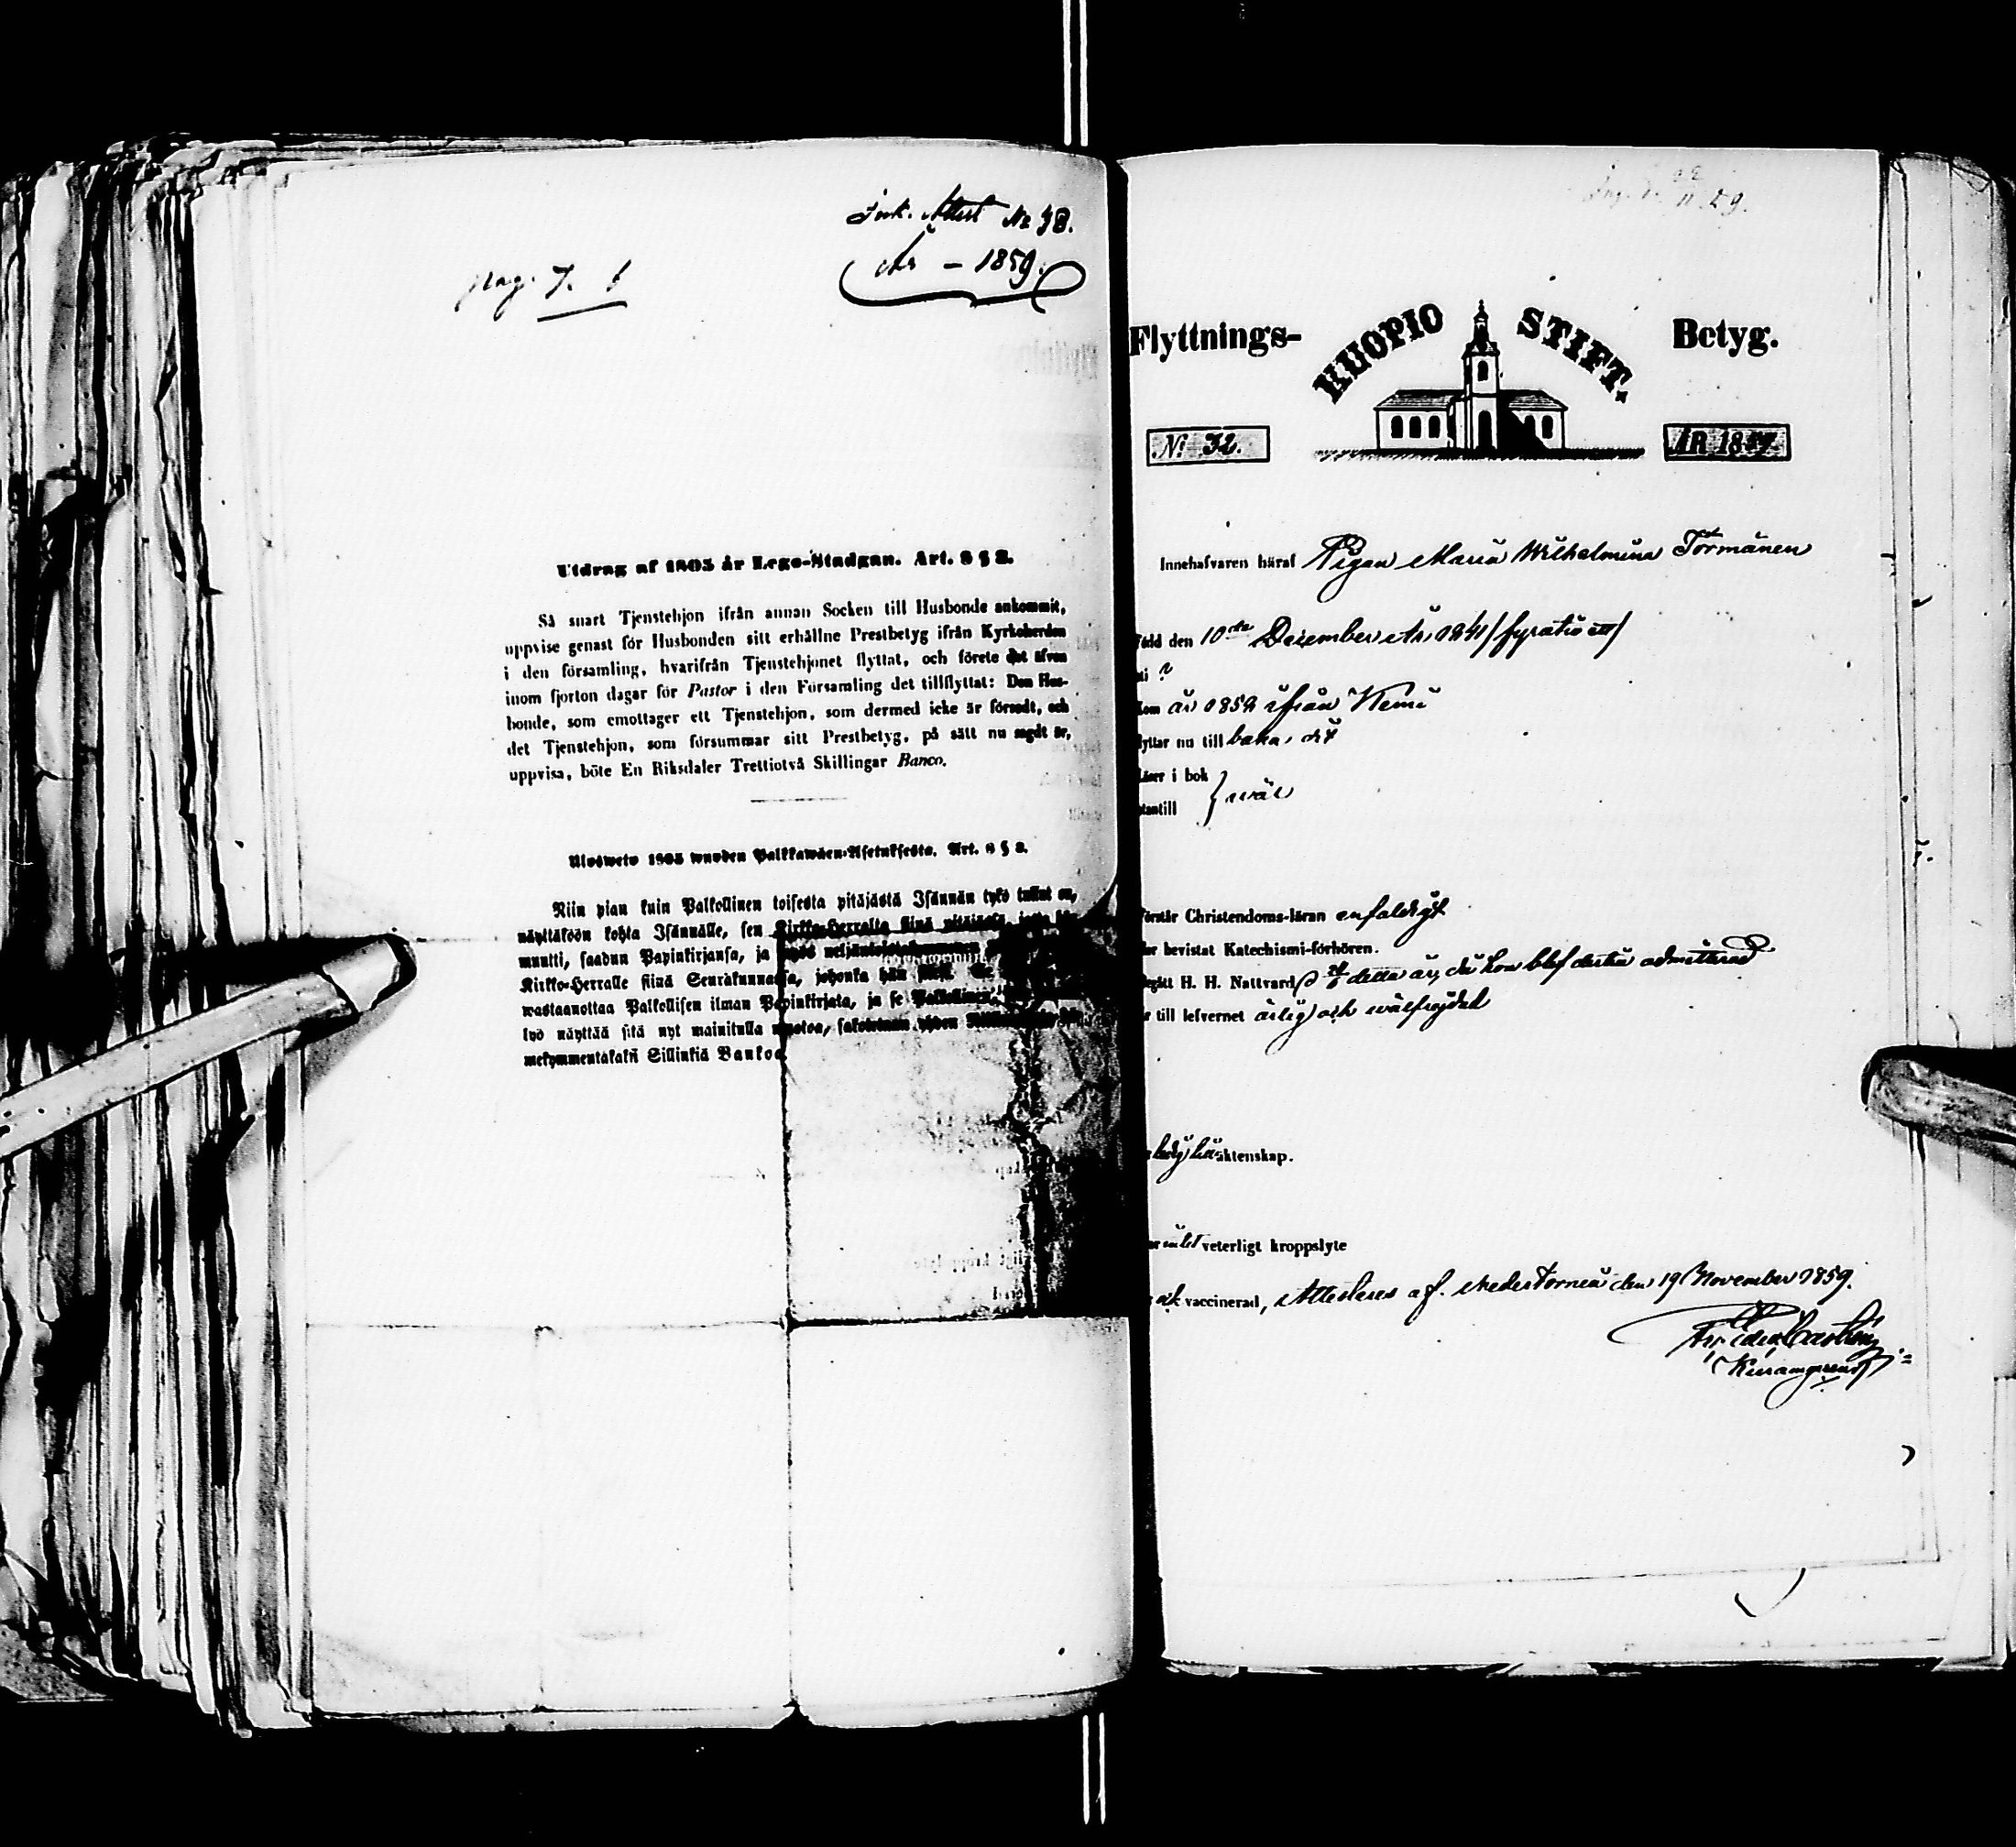 Ink. Attest No 38.
År – 1859.
pag. 7.
Utdrag af 1805 år Lego-Stadgan. Art. 8 § 2.
Så snart Tjenstehjon ifrån annan Socken till Husbonde ankommit,
uppvise genast för Husbonden sitt erhållne Prestbetyg ifrån Kyrkoherden
i den församling, hvarifrån Tjenstehjonet flyttat, och förete det äfven
inom fjorton dagar för Pastor i den Församling det tillflyttat: Den Hus-
bonde, som emottager ett Tjenstehjon, som dermed icke är försedt, och
det Tjenstehjon, som försummar sitt Prestbetyg, på sätt nu sagdt är,
uppvisa, böte En Riksdaler Trettiotvå Skillingar Banco.
Ulosweto 1805 wuoden Palkkawäen-Asetuksesta. Art. 8 § 2.
Niin pian kuin Palkollinen toisesta pitäjästä Isännän tykö tullut on,
näyttäköön kohta Isännälle, sen Kirkko-Herralta siinä pitäjässä, josta
muutti, saadun Papinkirjansa, ja myös neljäntoistakymmenen
Kirkko-Herralle siinä Seurakunnassa, johonka hän
wastaanottaa Palkollisen ilman Papinkirjata, ja se Palkollinen,
lyö näyttää sitä nyt mainitulla muotoa, sakoitetaan yhden
mekymmentäkaksi Sillinkiä Bankoa.
Flyttnings- KUOPIO STIFT. Betyg.
No 32. ÅR 1859.
Innehafvaren häraf Pigan Maria Wilhelmina Törmänen
född den 10de December År 1841 /fyratio ett/
ti ?
kom år 1859 ifrån Kemi
flyttar nu till baka, dit
Läser i bok } wäl
utantill
Förstår Christendoms-läran enfaldigt
har bevistat Katechismi-förhören.
Begått H. H. Nattvard detta år, då hon blef dertill admitterad
är till lefvernet ärlig och wälfrejdad
ledig till äktenskap.
har intet veterligt kroppslyte
och vaccinerad, Attesteras af. NederTorneå den 19 November 1859.